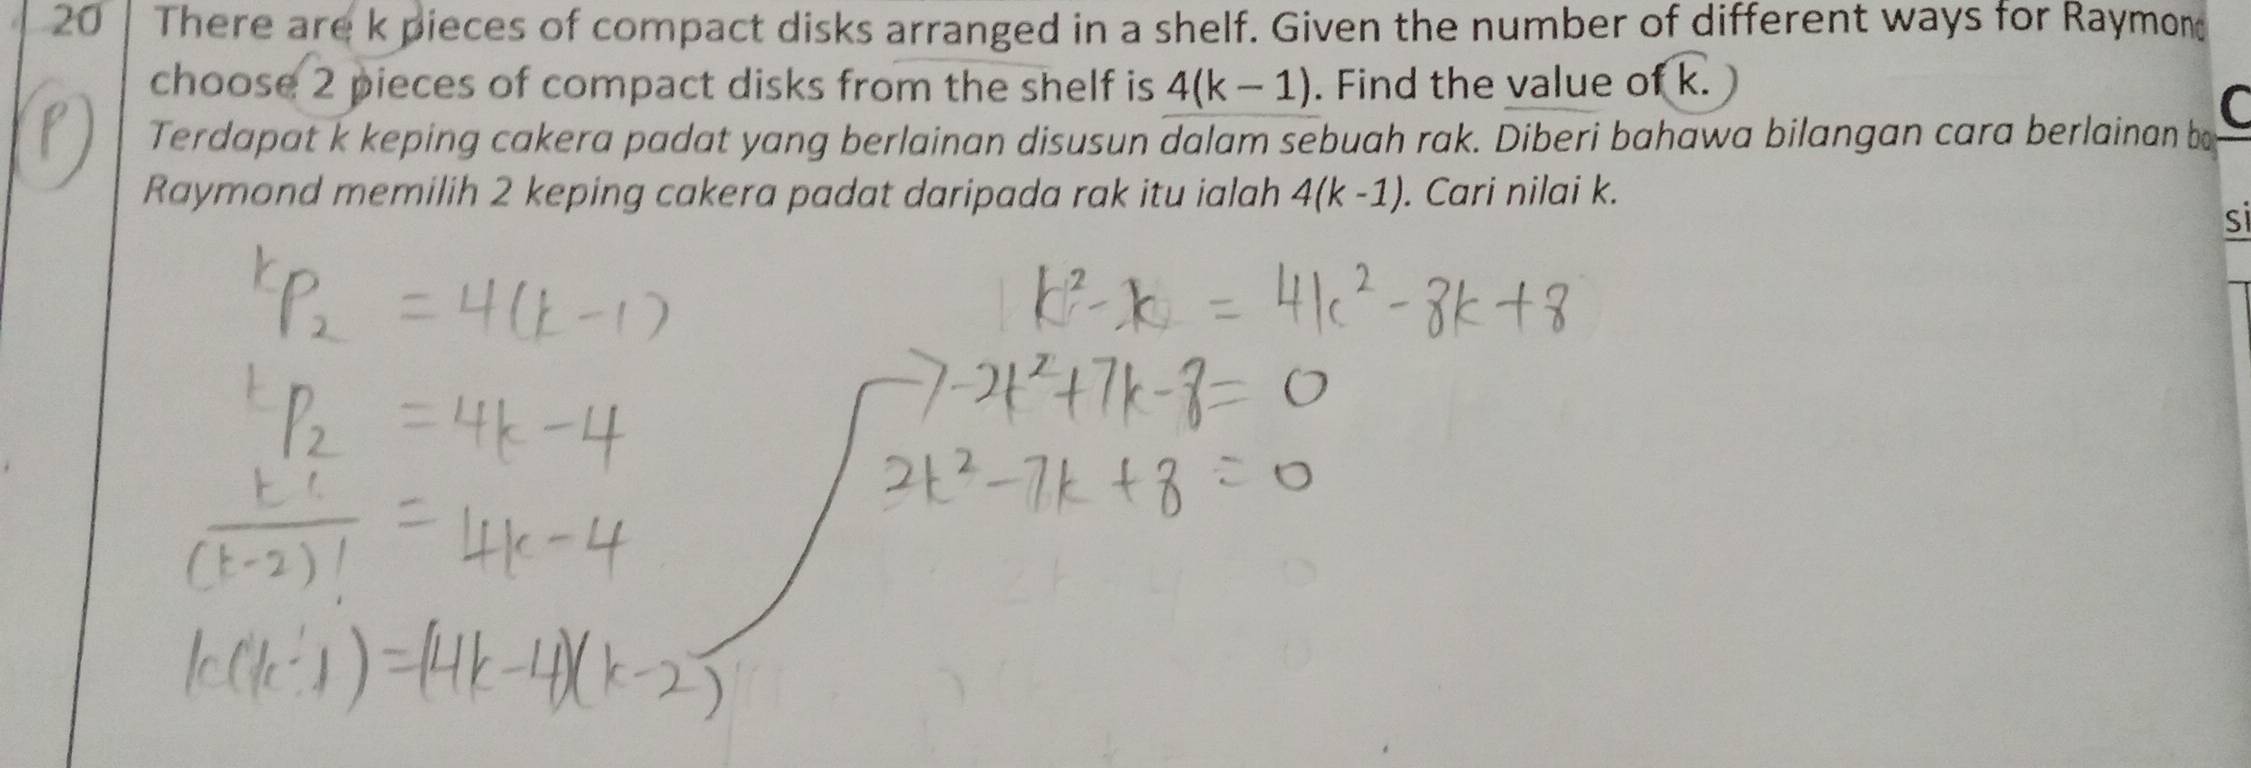 20 There are k pieces of compact disks arranged in a shelf. Given the number of different ways for Raymond
choose 2 pieces of compact disks from the shelf is 4(k – 1). Find the value of k. )
(P)
C
Terdapat k keping cakera padat yang berlainan disusun dalam sebuah rak. Diberi bahawa bilangan cara berlainan ba
Raymond memilih 2 keping cakera padat daripada rak itu ialah 4(k -1). Cari nilai k.
si
ᵏP₂ = 4(k-1)
ᵏP₂ = 4k-4
k!/(k-2)! = 4k-4
k(k-1)=(4k-4)(k-2)
k²-k = 4k²-8k+8
→-2k²+7k-8= 0
2k²-7k+8 = 0